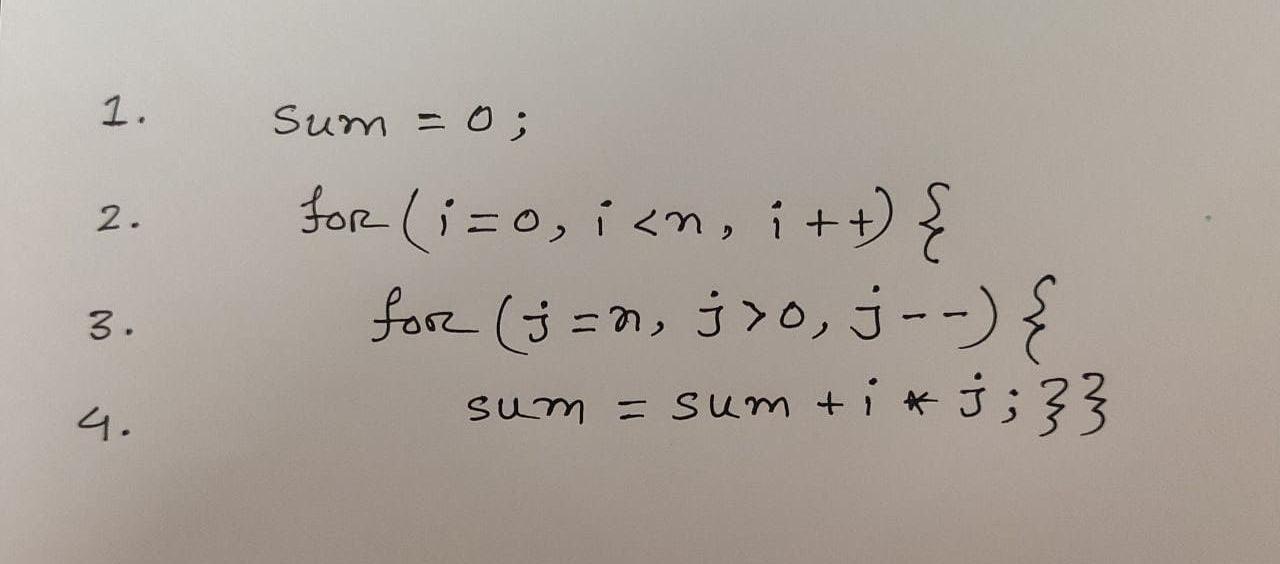 1. sum = 0;
2. for (i=0, i<n, i++) {
3. for (j=n, j>0, j--) {
4. sum = sum + i * j;}}